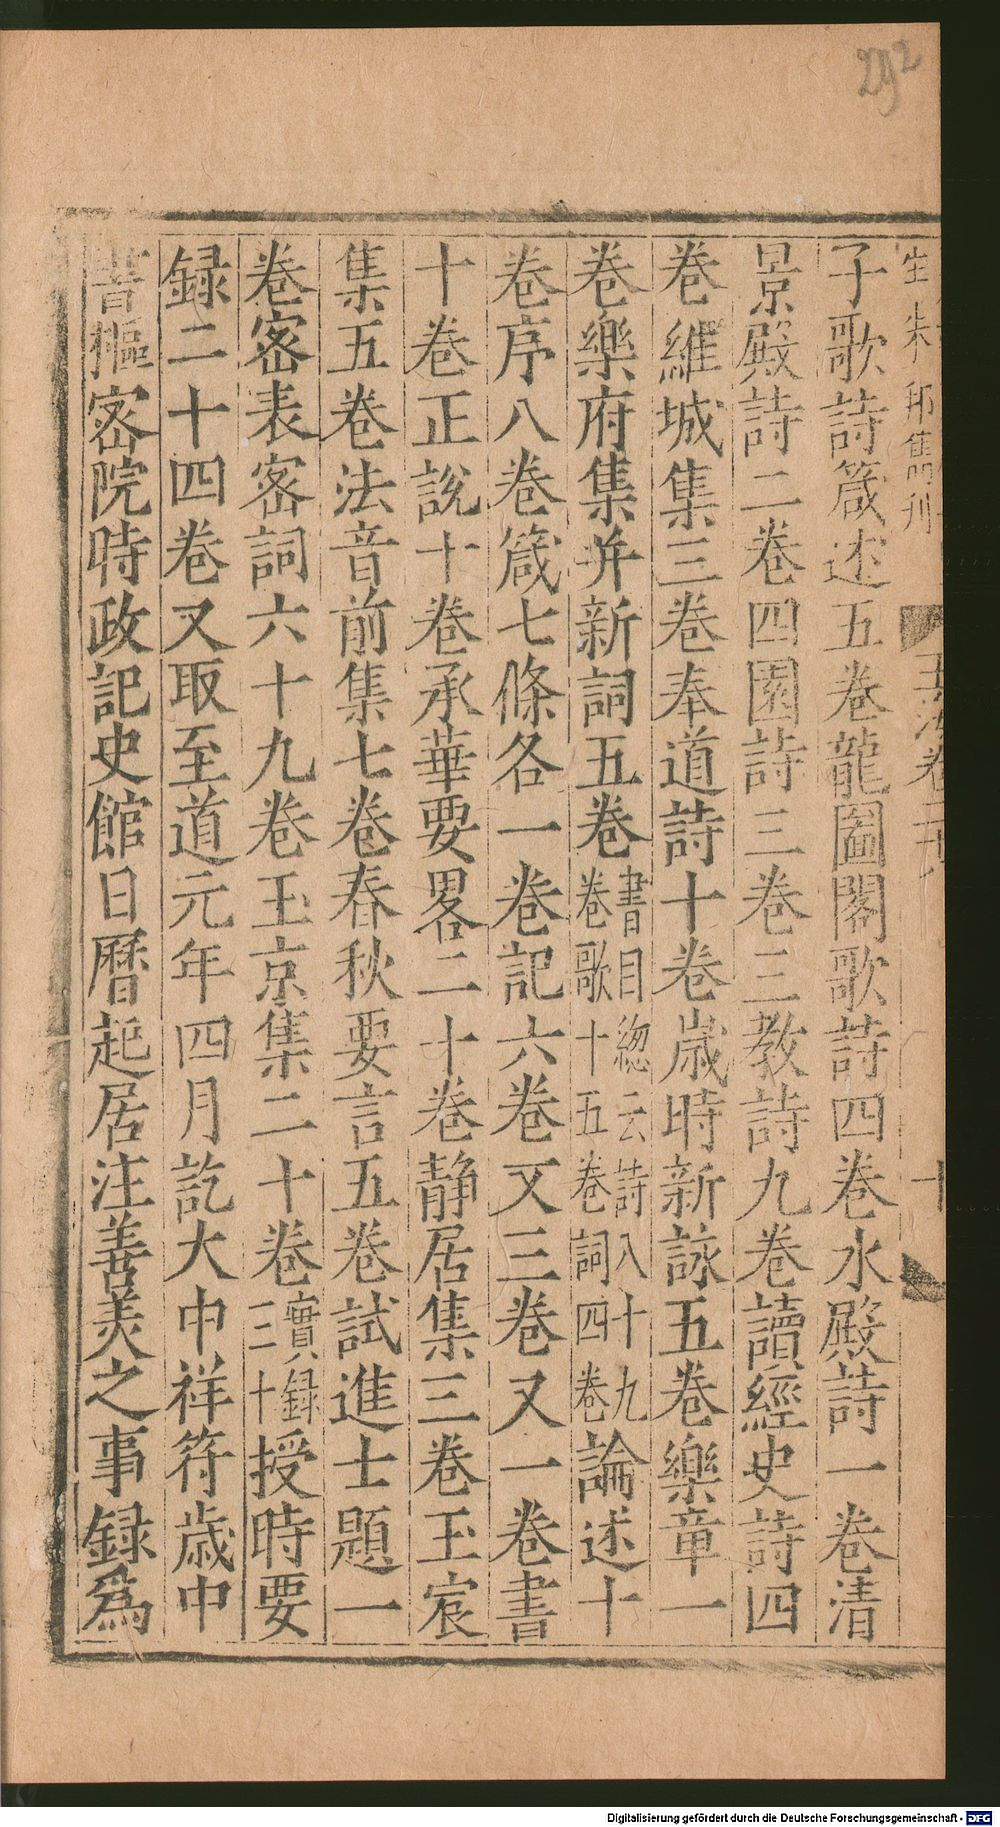 292
子歌詩箴述五卷龍圖閣歌詩四卷水殿詩一卷清
景殿詩二卷四園詩三卷三教詩九卷讀經史詩四
卷維城集三卷奉道詩十卷歲時新詠五卷樂章一
卷樂府集并新詞五卷書目緫云詩八十九卷歌十五卷詞四卷論述十
卷序八卷箴七條各一卷記六卷又三卷又一卷書
十卷正說十卷承華要畧二十卷静居集三卷玉宸
集五卷法音前集七卷春秋要言五卷試進士題一
卷宻表宻詞六十九卷玉京集二十卷實録三十授時要
録二十四卷又取至道元年四月訖大中祥符歲中
書樞宻院時政記史館日曆起居注善美之事録為
Digitalisierung gefördert durch die Deutsche Forschungsgemeinschaft - DFG